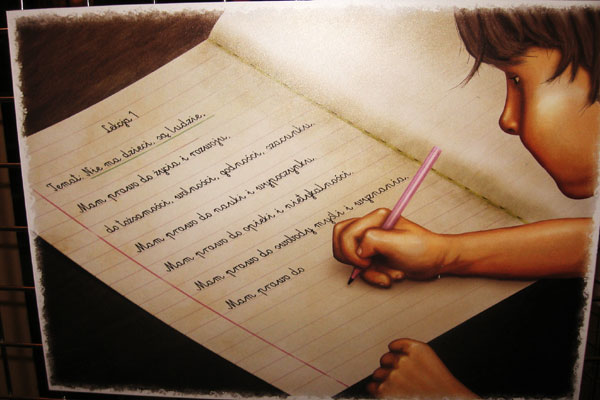 Lekcja 1
Temat: Nie ma dzieci, są ludzie.
Mam prawo do życia i rozwoju,
do tożsamości, wolności, godności, szacunku.
Mam prawo do nauki i wypoczynku.
Mam prawo do opieki i nietykalności.
Mam prawo do swobody myśli i wyznania.
Mam prawo do